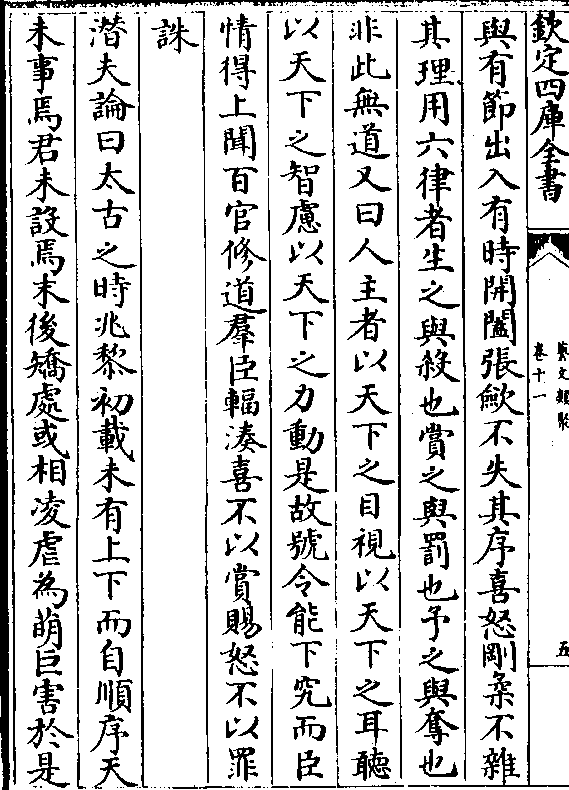 欽定四庫全書
藝文類聚
卷十一
五
與有節出入有時開闔張歙不失其序喜怒剛柔不雜
其理用六律者生之與殺也賞之與罰也予之與奪也
非此無道又曰人主者以天下之目視以天下之耳聽
以天下之智慮以天下之力動是故號令能下究而臣
情得上聞百官修道羣臣輻湊喜不以賞賜怒不以罪
誅
潛夫論曰太古之時兆黎初載未有上下而自順序天
未事焉君未設焉末後矯處或相凌虐為萌巨害於是